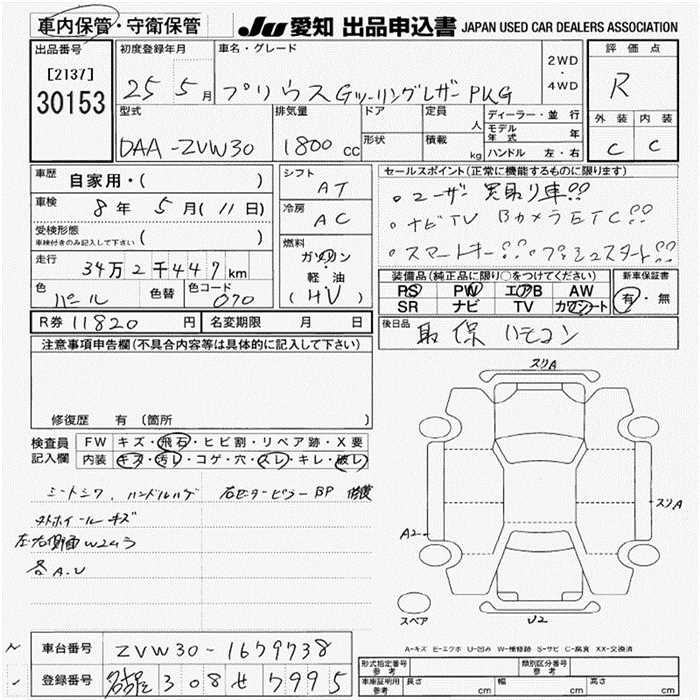 車内保管・守衛保管
JU 愛知 出品申込書 JAPAN USED CAR DEALERS ASSOCIATION
出品番号
[2137]
30153
初度登録年月
25 5月
車名・グレード
プリウスGツーリングレザーPKG
2WD
・
4WD
評価点
R
外装 内装
C C
型式
DAA-ZVW30
排気量
1800cc
ドア
形状
定員
人
積載
kg
ディーラー・並行
モデル年式 年
ハンドル 左・右
車歴
自家用・( )
車検
8年 5月(11日)
受検形態
車検付きのみ記入して下さい ( )
走行
34万2千447km
色
パール
色替
色コード
070
シフト
AT
冷房
AC
燃料
ガソリン
軽・油
(HV)
セールスポイント(正常に機能するものに限ります)
・ユーザー買取り車!!
・ナビTV BカメラETC!!
・スマートキー!! プッシュスタート!!
装備品(純正品に限り○をつけてください)
PS PW エアB AW
SR ナビ TV カワシート
新車保証書
有・無
R券 11820円
名変期限 月 日
後日品
取 保 リモコン
注意事項申告欄(不具合内容等は具体的に記入して下さい)
修復歴 有(箇所
検査員
記入欄
FW キズ・飛石・ヒビ割・リペア跡・X要
内装 キズ・汚レ・コゲ・穴・スレ・キレ・破レ
シートシワ、ハンドルハゲ 右センターピラーBP 修復
タホイールキズ
左右側面W2ムラ
各A.U
スリA
スリA
A2
U2
スペア
A-キズ E-エクボ U-凹み W-補修跡 S-サビ C-腐食 XX-交換済
車台番号 ZVW30-1679738
登録番号 名古屋 308 せ 7995
形式指定番号
参考
類別区分番号
参考
車庫証明用
参考
長さ cm
幅 cm
高さ cm